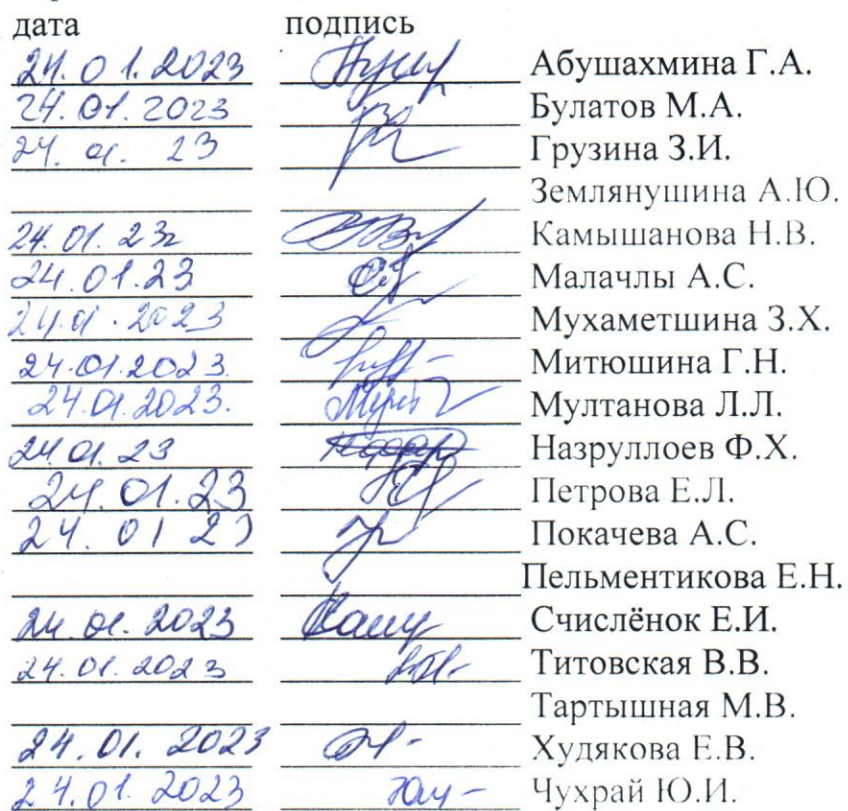 дата подпись
24.01.2023 Абушахмина Г.А.
24.01.2023 Булатов М.А.
24. 01. 23 Грузина З.И.
Землянушина А.Ю.
24. 01. 23г Камышанова Н.В.
24.01.23 Малачлы А.С.
24.01.2023 Мухаметшина З.Х.
24.01.2023. Митюшина Г.Н.
24.01.2023. Мултанова Л.Л.
24 01. 23 Назруллоев Ф.Х.
24. 01.23 Петрова Е.Л.
24. 01 23 Покачева А.С.
Пельментикова Е.Н.
24. 01. 2023 Счислёнок Е.И.
24.01. 2023 Титовская В.В.
Тартышная М.В.
24. 01. 2023 Худякова Е.В.
24.01. 2023 Чухрай Ю.И.